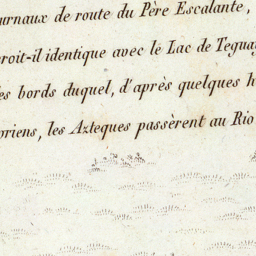 urnaux de route du Père Escalante,
roit-il identique avec le Lac de Teguay
es bords duquel, d'après quelques h
oriens, les Azteques passèrent au Rio